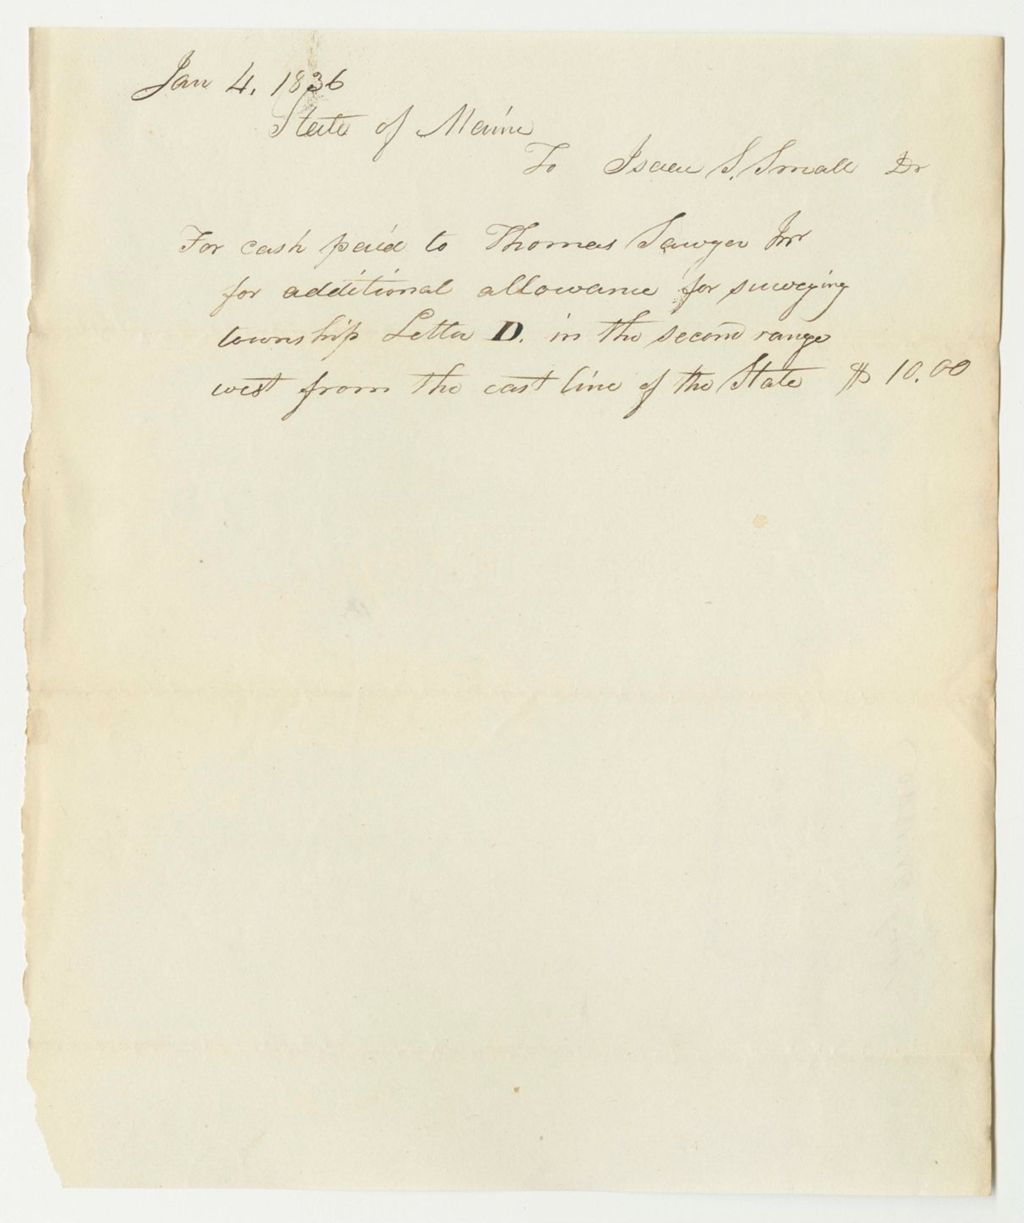 Jan 4, 1836
State of Maine
To Isaac S. Small Dr
For cash paid to Thomas Sawyer Jnr
for additional allowance for surveying
township Letter D. in the second range
west from the east line of the State $ 10.00